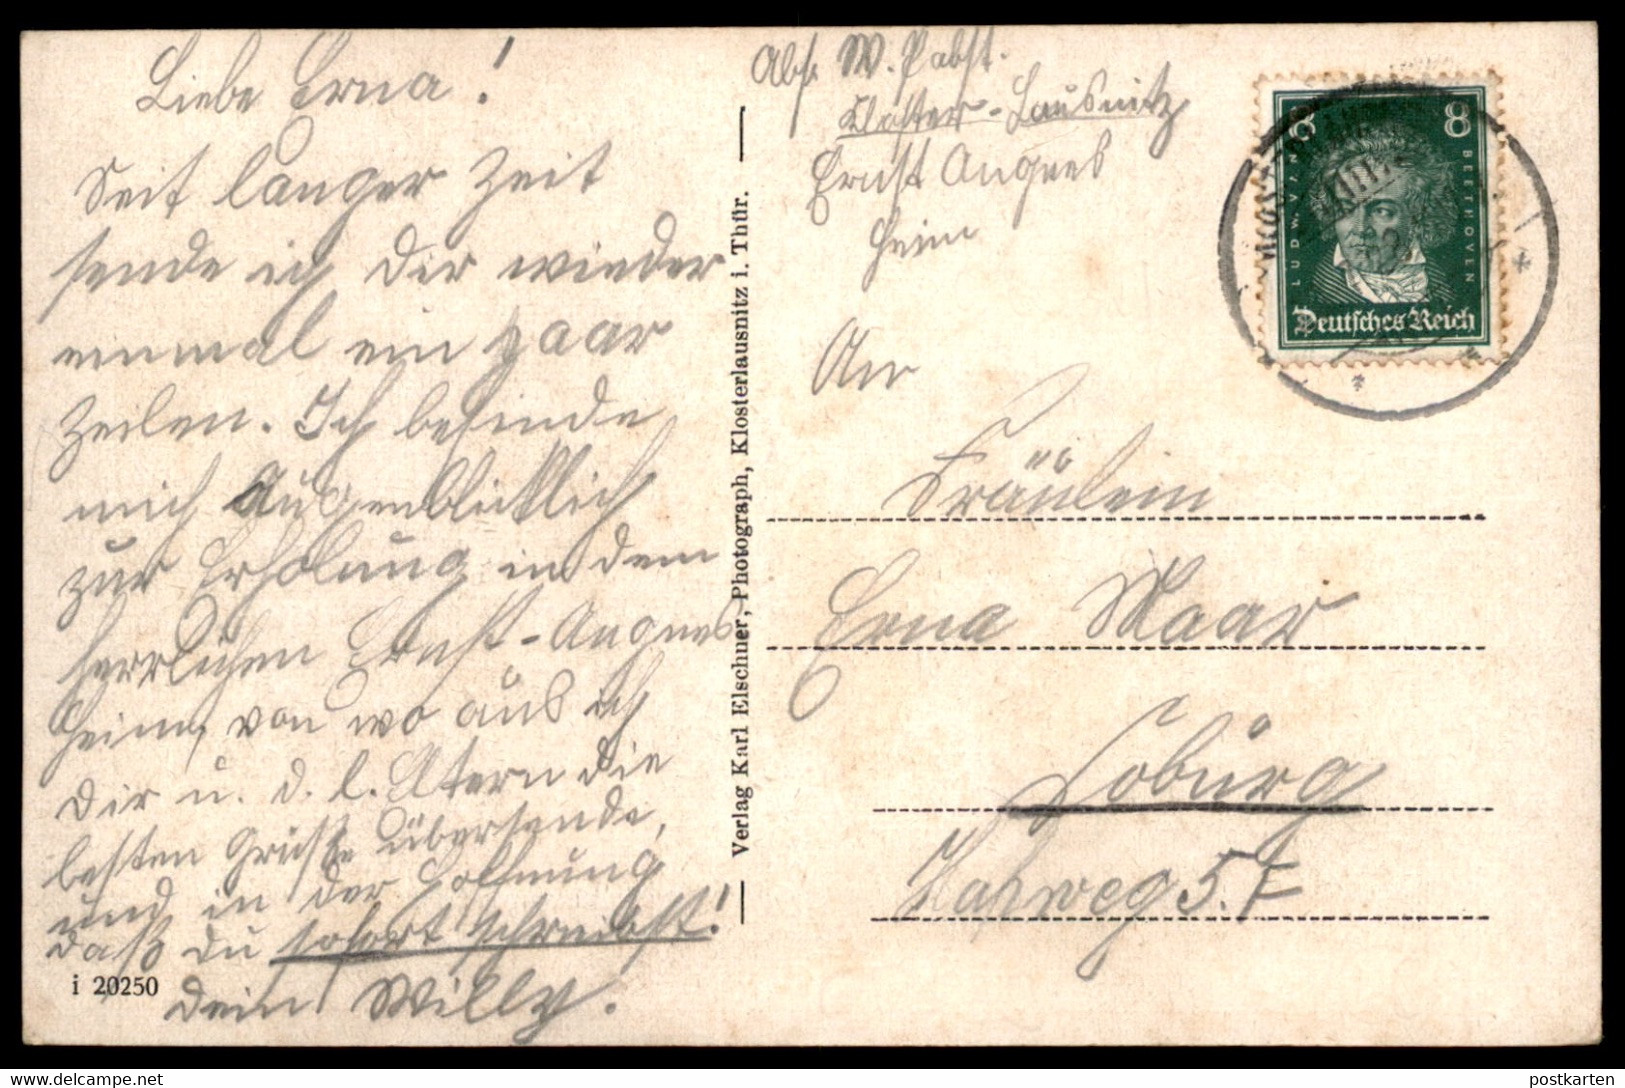 Liebe Erna!
Seit langer Zeit
sende ich Dir wieder
einmal ein paar
Zeilen. Ich befinde
mich Augenblicklich
zur Erholung in dem
herrlichen Ernst-Angnes
heim, von wo aus ich
Dir u. d. l. Eltern die
besten Grüße übersende,
und in der Hoffnung
daß du sofort schreibst!
Dein Willy.
i 20250
Verlag Karl Elschner, Photograph, Klosterlausnitz i. Thür.
Abs. W. Pabst.
Kloster-Lausnitz
Ernst Angnes
heim
An
Fräulein
Erna Maar
Coburg
5.
8 8
LUDW. VAN BEETHOVEN
Deutsches Reich
postkarten